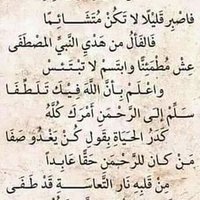 فاصْبِر قَلِيْلًا لا تَكُنْ مُتَشَائِمَا
فالفَألُ من هَدْيِ النَّبِيِّ المصْطَفَى
عِشْ مُطْمَئِنًّا وابتَسْم لا تبْتَئسْ
واعْلم بِأنَّ اللهَ فِيْكَ تَلَطَّفَا
سَلِّمْ إلى الرَّحْمَنِ أمْرَكَ كُلَّهُ
كَدَرُ الحَيَاةِ بِقَولِ كُنْ يَغْدُو صَفَا
مَنْ كان للرَّحْمنِ حَقًّا عَابِداً
مِن قَلبِهِ نَار التَّعاسَةِ قَدْ طَفَى